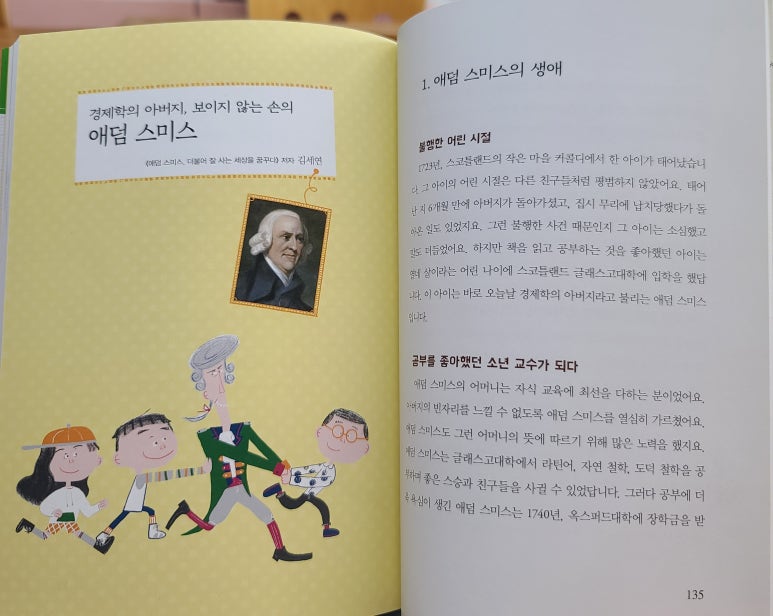 경제학의 아버지, 보이지 않는 손의
애덤 스미스
《애덤 스미스, 더불어 잘 사는 세상을 꿈꾸다》 저자 김세연
1. 애덤 스미스의 생애
불행한 어린 시절
1723년, 스코틀랜드의 작은 마을 커콜디에서 한 아이가 태어났습니
다. 그 아이의 어린 시절은 다른 친구들처럼 평범하지 않았어요. 태어
난 지 6개월 만에 아버지가 돌아가셨고, 집시 무리에 납치당했다가 돌
아온 일도 있었지요. 그런 불행한 사건 때문인지 그 아이는 소심했고
말도 더듬었어요. 하지만 책을 읽고 공부하는 것을 좋아했던 아이는
열네 살이라는 어린 나이에 스코틀랜드 글래스고대학에 입학을 했답
니다. 이 아이는 바로 오늘날 경제학의 아버지라고 불리는 애덤 스미스
입니다.
공부를 좋아했던 소년 교수가 되다
애덤 스미스의 어머니는 자식 교육에 최선을 다하는 분이었어요.
아버지의 빈자리를 느낄 수 없도록 애덤 스미스를 열심히 가르쳤어요.
애덤 스미스도 그런 어머니의 뜻에 따르기 위해 많은 노력을 했지요.
애덤 스미스는 글래스고대학에서 라틴어, 자연 철학, 도덕 철학을 공
부하며 좋은 스승과 친구들을 사귈 수 있었답니다. 그러다 공부에 더
욱 욕심이 생긴 애덤 스미스는 1740년, 옥스퍼드대학에 장학금을 받
135